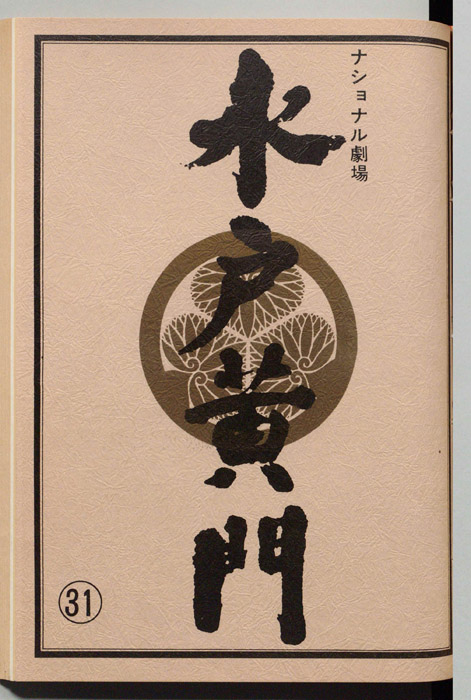 ナショナル劇場
水戸黄門
㉛